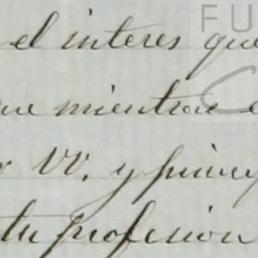 FU
el interes que
que mientras e
r VV. y princ
tu profesion